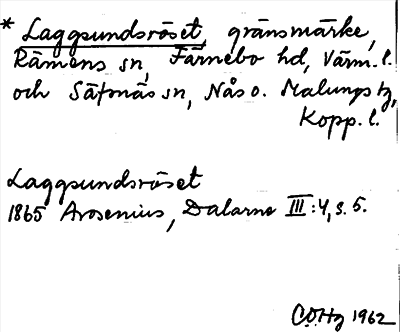 * Laggsundsröset, gränsmärke,
Rämens sn, Färnebo hd, Värm. l.
och Säfsnäs sn, Nås o. Malungs tg,
Kopp. l.
Laggsundsröset
1865 Arosenius, Dalarne III:4, s. 5.
1962